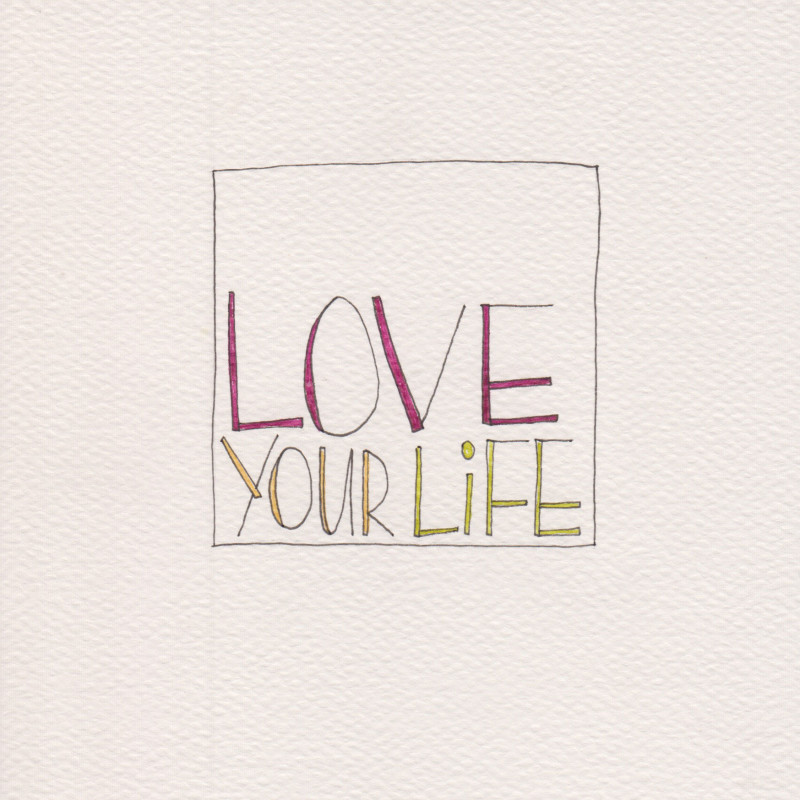 LOVE
YOUR LiFE